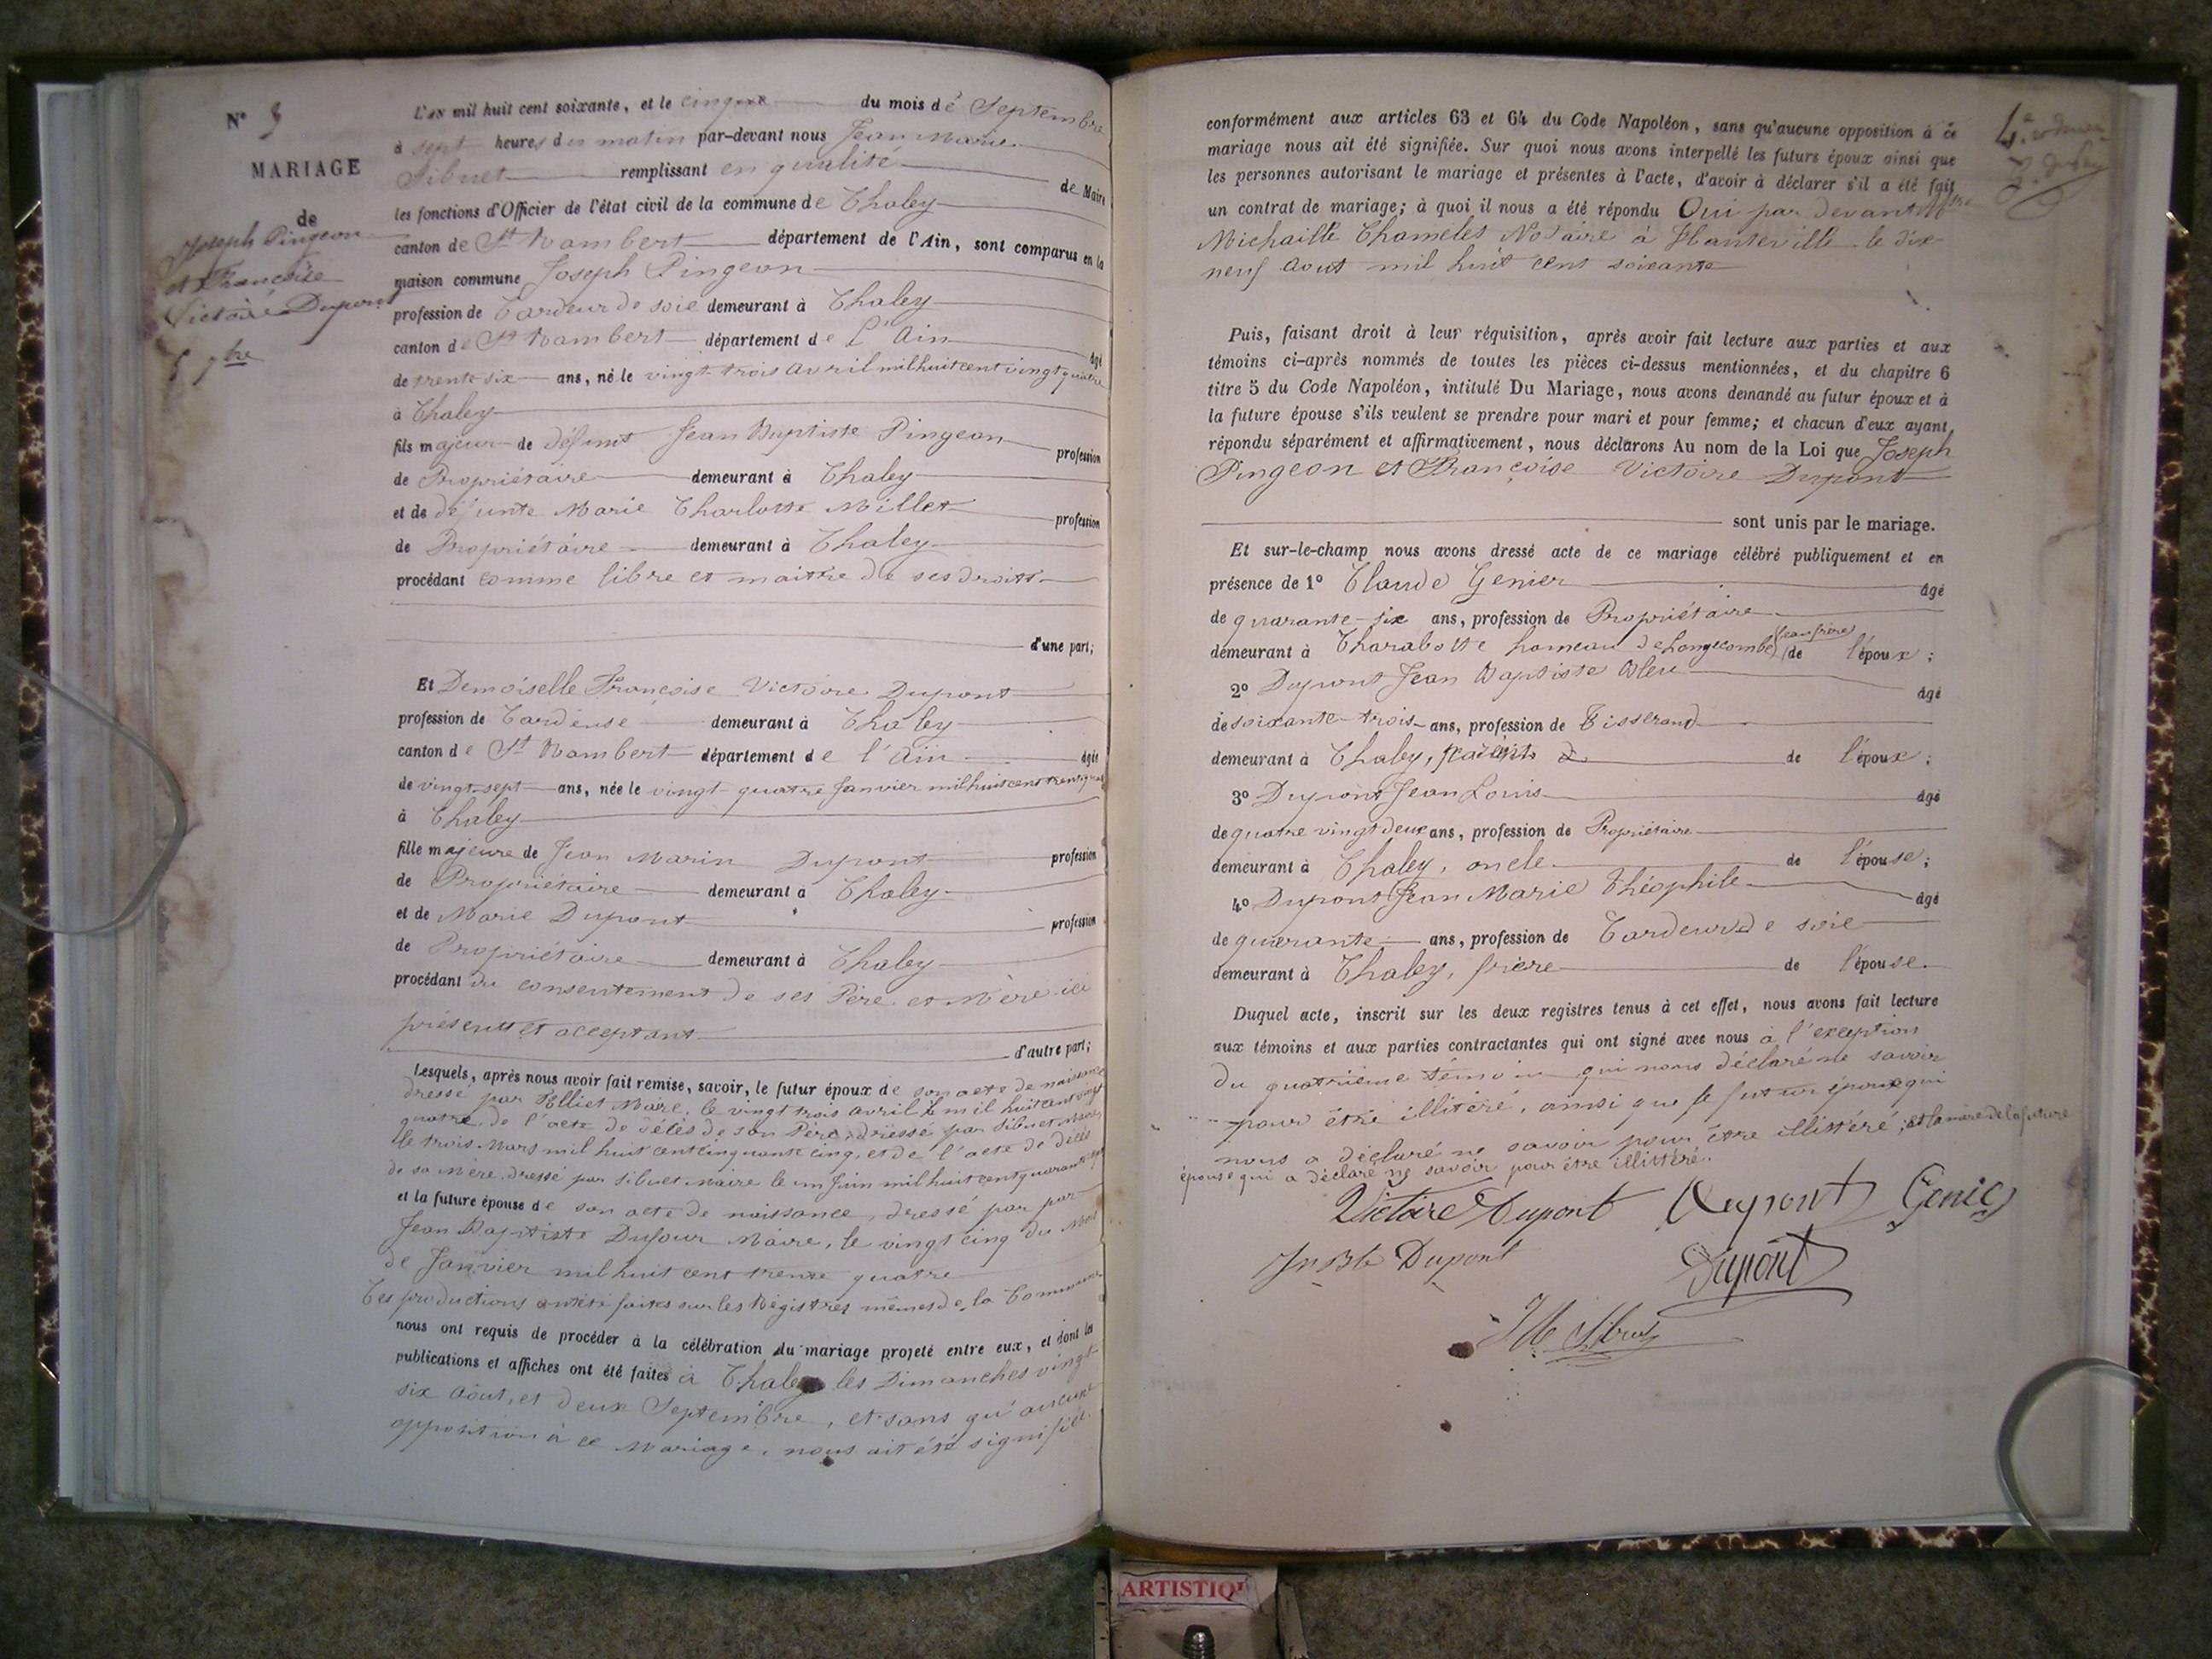 N° 3
MARIAGE
de
Joseph Pingeon
et Francoise
Victoire Dupont
5 7bre
L'an mil huit cent soixante, et le cinq du mois de Septembre
à sept heures du matin par-devant nous Jean Marie
Sibuet remplissant en qualité de Maire
les fonctions d'Officier de l'état civil de la commune de Chaley
canton de St Rambert département de l'Ain, sont comparus en la
maison commune Joseph Pingeon
profession de Cardeur de soie demeurant à Chaley
canton de St Rambert département de L'Ain âgé
de trente six ans, né le vingt trois avril mil huit cent vingt quatre
à Chaley
fils majeur de défunt Jean Baptiste Pingeon profession
de Propriétaire demeurant à Chaley
et de défunte Marie Charlotte Millet profession
de Propriétaire demeurant à Chaley
procédant comme libre et maitre de ses droits
d'une part;
Et Demoiselle Francoise Victoire Dupont
profession de Cardeuse demeurant à Chaley
canton de St Rambert département de l'Ain âgée
de vingt-sept ans, née le vingt quatre Janvier mil huit cent
à Chaley
fille majeure de Jean Marin Dupont profession
de Propriétaire demeurant à Chaley
et de Marie Dupont profession
de Propriétaire demeurant à Chaley
procédant du consentement de ses Père et Mère ici
présents et acceptant
d'autre part;
Lesquels, après nous avoir fait remise, savoir, le futur époux de son acte de naissance
dressé par Maire, le vingt trois avril mil huit cent vingt
quatre de l'acte de décès de son Père, dressé par Sibuet Maire
le trois Mars mil huit cent cinquante cinq, et de l'acte de décès
de sa Mère, dressé par Sibuet Maire le un Juin mil huit cent
et la future épouse de son acte de naissance, dressé par par
Jean Baptiste Dufour Maire, le vingt cinq du Mois
de Janvier mil huit cent trente quatre
Ces productions faites sur les Régistres mêmes de la Commune
nous ont requis de procéder à la célébration du mariage projeté entre eux, et dont les
publications et affiches ont été faites à Chaley les Dimanches vingt
six Août, et deux Septembre, et sans qu'aucune
opposition à ce Mariage, nous ait été signifiée
conformément aux articles 63 et 64 du Code Napoléon, sans qu'aucune opposition à ce
mariage nous ait été signifiée. Sur quoi nous avons interpellé les futurs époux ainsi que
les personnes autorisant le mariage et présentes à l'acte, d'avoir à déclarer s'il a été fait
un contrat de mariage; à quoi il nous a été répondu Oui par devant
Michaille Chamelet Notaire à Hauteville le dix
neuf Aout mil huit cent soixante
Puis, faisant droit à leur réquisition, après avoir fait lecture aux parties et aux
témoins ci-après nommés de toutes les pièces ci-dessus mentionnées, et du chapitre 6
titre 5 du Code Napoléon, intitulé Du Mariage, nous avons demandé au futur époux et à
la future épouse s'ils veulent se prendre pour mari et pour femme; et chacun d'eux ayant
répondu séparément et affirmativement, nous déclarons Au nom de la Loi que Joseph
Pingeon et Françoise Victoire Dupont
sont unis par le mariage.
Et sur-le-champ nous avons dressé acte de ce mariage célébré publiquement et en
présence de 1° Claude Genier âgé
de quarante-six ans, profession de Propriétaire
demeurant à Charabotte hameau de Longecombe (beau frère) de l'époux;
2° Dupont Jean Baptiste âgé
de soixante-trois ans, profession de Tisserand
demeurant à Chaley, parent de l'époux;
3° Dupont Jean Louis âgé
de quatre vingt deux ans, profession de Propriétaire
demeurant à Chaley, oncle de l'épouse;
4° Dupont Jean Marie Théophile âgé
de quarante ans, profession de Cardeur de soie
demeurant à Chaley, frère de l'épouse.
Duquel acte, inscrit sur les deux registres tenus à cet effet, nous avons fait lecture
aux témoins et aux parties contractantes qui ont signé avec nous à l'exception
du quatrième témoin qui nous déclaré ne savoir
pour être illitéré, ainsi que le futur époux qui
nous a déclaré ne savoir pour être illittéré; et la mère de la future
épouse qui a déclaré ne savoir pour être illittéré.
Victoire Dupont Dupont Genier
Jn Bte Dupont Dupont
JM Sibuet
ARTISTIQ